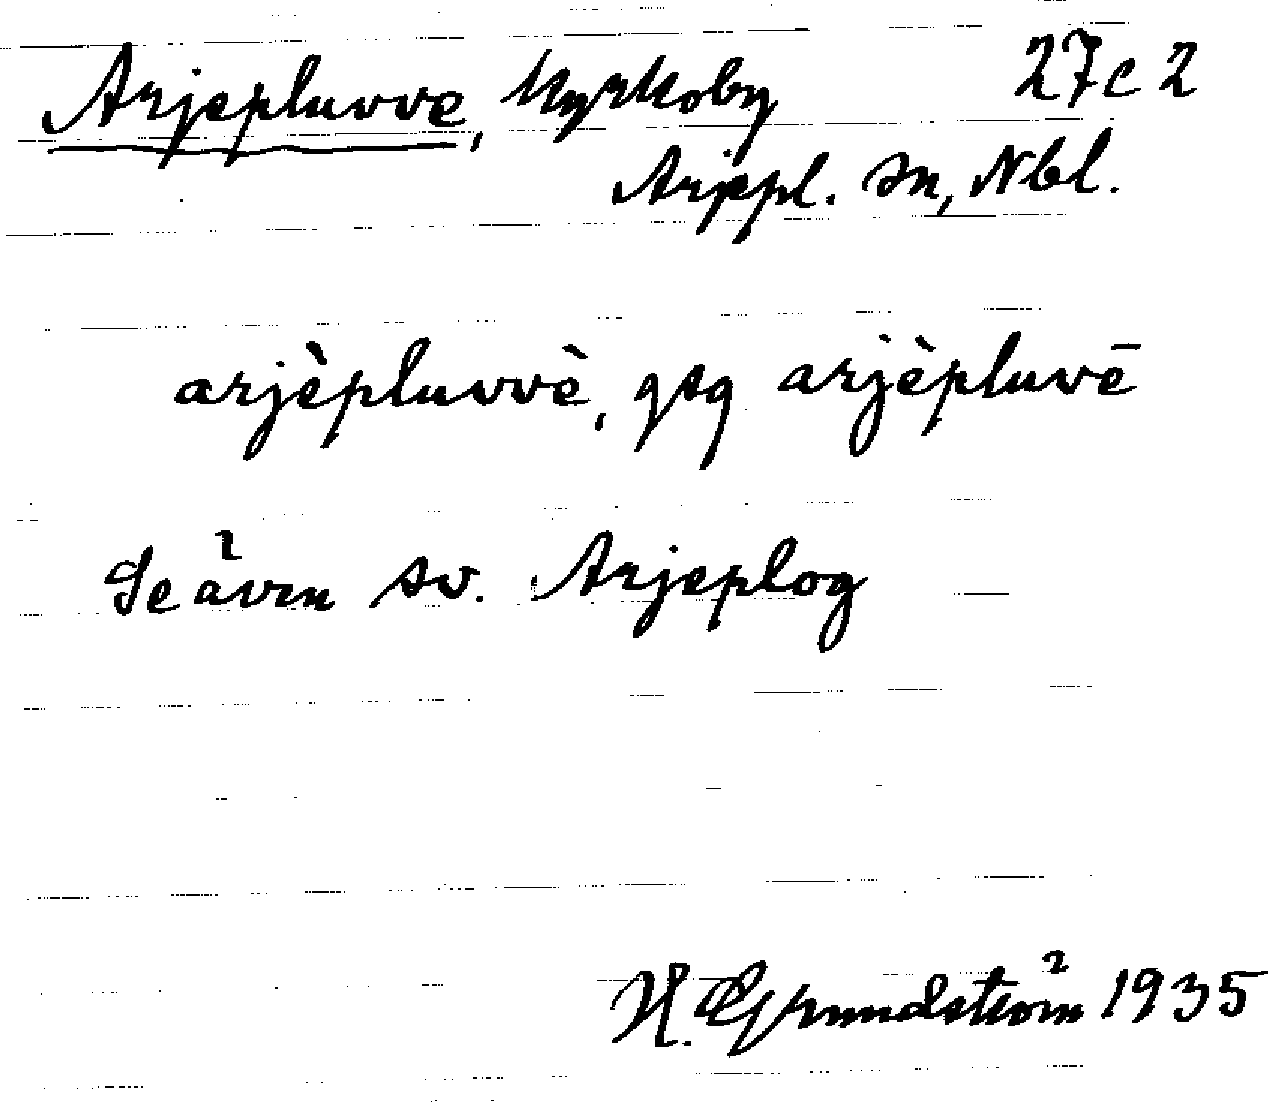 Arjepluvve, Kyrkoby 27c2
Arjepl. sn, Nbl.
arjèpluvvè, gsg arjèpluvē
Se även sv. Arjeplog
H. Grundström 1935